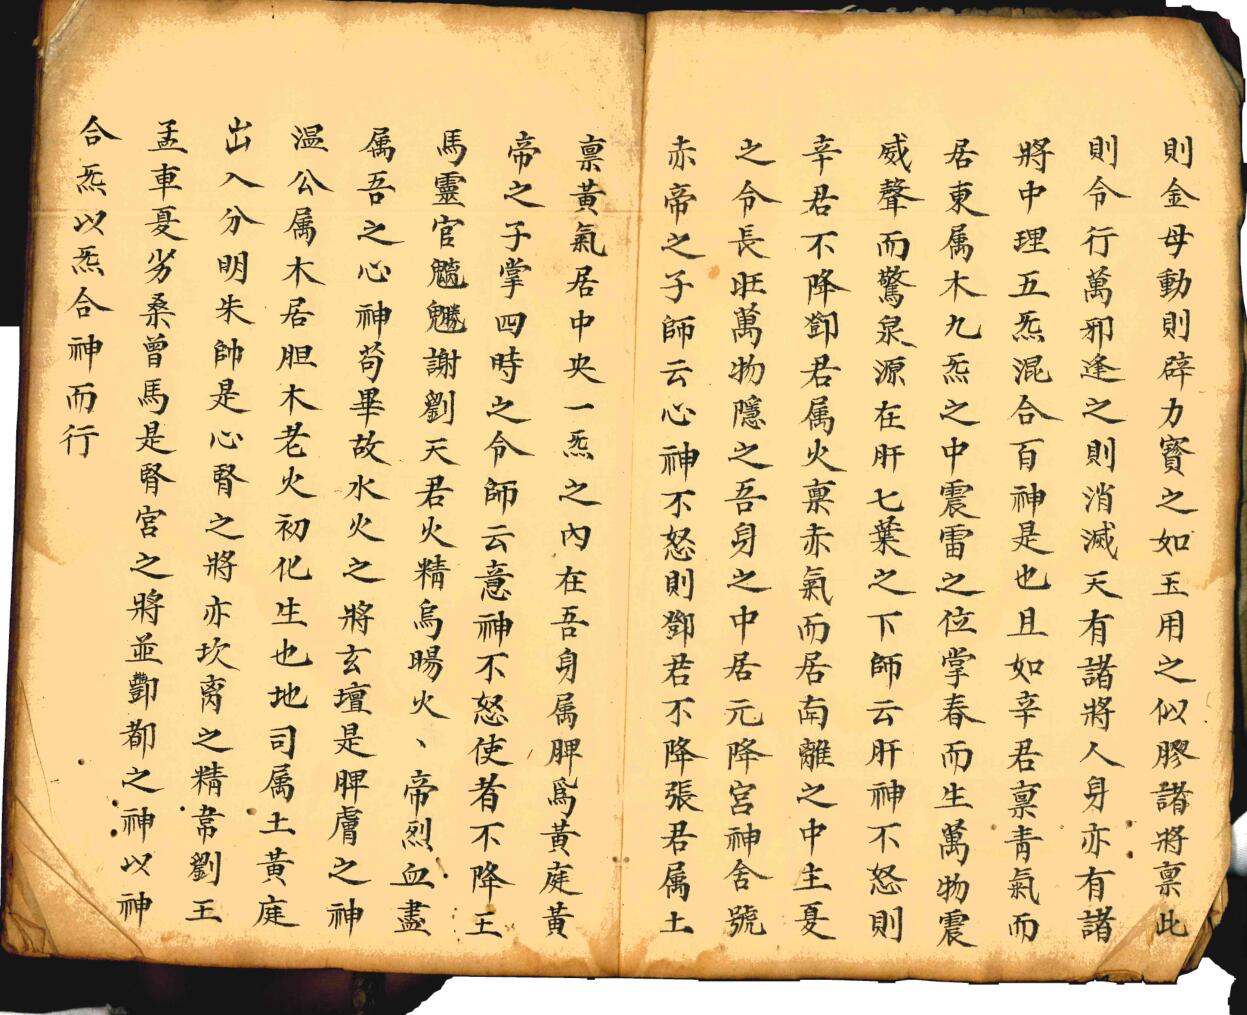 則金母動則辟力寳之如玉用之似膠諸將禀此
則令行萬邪逢之則消滅天有諸將人身亦有諸
將中理五炁混合百神是也且如辛君禀青氣而
居東属木九炁之中震雷之位掌春而生萬物震
威聲而驚泉源在肝七葉之下師云肝神不怒則
辛君不降鄧君属火禀赤氣而居南離之中主夏
之令長旺萬物隱之吾身之中居元降宮神舍號
赤帝之子師云心神不怒則鄧君不降張君属土
禀黃氣居中央一炁之內在吾身属脾爲黃庭黃
帝之子掌四時之令師云意神不怒使者不降王
馬靈官魑魎謝劉天君火精烏暘火丶帝烈血盡
属吾之心神苟畢故水火之將玄壇是脾膚之神
温公属木居胆木老火初化生也地司属土黃庭
出入分明朱帥是心腎之將亦坎离之精韋劉王
孟車夏劣桑曾馬是腎宮之將並酆都之神以神
合炁以炁合神而行